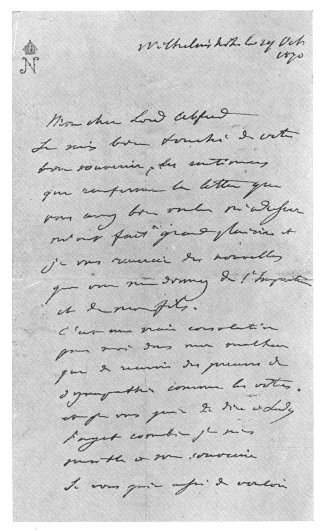 N
Wilhelmshöhe le 29 Oct
1870
Mon cher Lord Alfred
Je suis bien touché de votre
bon souvenir, les sentiments
que renferme la lettre que
vous avez bien voulu m'adresser
m'ont fait grand plaisir et
je vous remercie des nouvelles
que vous me donnez de l'Impératrice
et de mon fils.
C'est une vraie consolation
pour moi dans mon malheur
que de recevoir des preuves de
sympathie comme les votres.
vous prie de dire à Lady
Paget combien je suis
sensible à son souvenir
Je vous prie aussi de vouloir